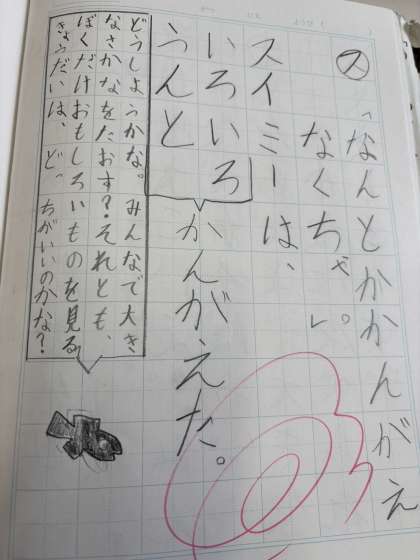 ス
「なんとかかんがえ
なくちゃ。」
スイミーは、
いろいろ
うんと
かんがえた。
どうしようかな。みんなで大き
なさかなをたおす?それとも、
ぼくだけおもしろいものを見る
きょうだいは、どっちがいいのかな?